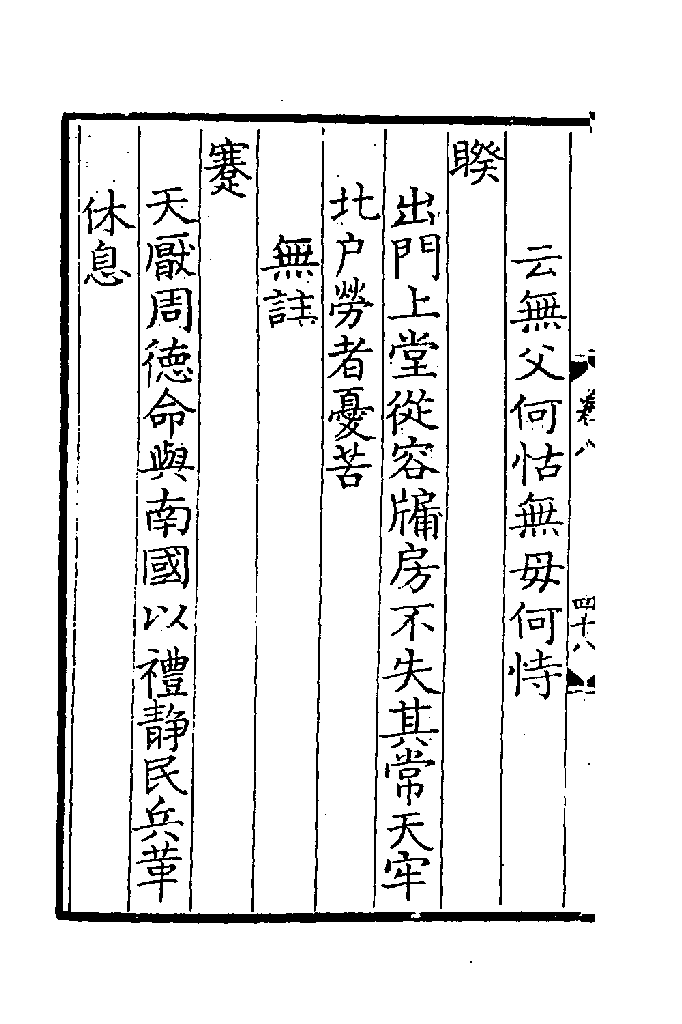 卷八
四十八
云無父何怙無毋何恃
睽
出門上堂從容牖房不失其常天牢
北户勞者憂苦
無註
蹇
天厭周德命與南國以禮静民兵革
休息